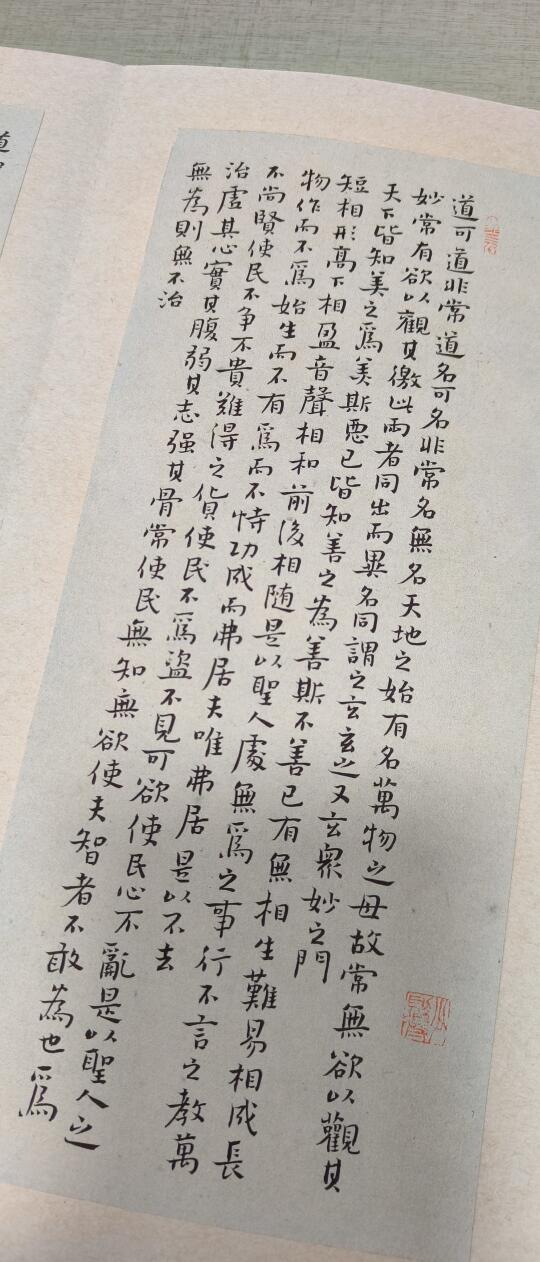 道可道非常道名可名非常名無名天地之始有名萬物之母故常無欲以觀其
妙常有欲以觀其徼此兩者同出而異名同謂之玄玄之又玄衆妙之門
天下皆知美之爲美斯惡已皆知善之為善斯不善已有無相生難易相成長
短相形高下相盈音聲相和前後相随是以聖人處無爲之事行不言之教萬
物作而不爲始生而不有爲而不恃功成而弗居夫唯弗居是以不去
不尚賢使民不争不貴難得之貨使民不爲盜不見可欲使民心不亂是以聖人之
治虛其心實其腹弱其志强其骨常使民無知無欲使夫智者不敢為也爲
無為則無不治
道